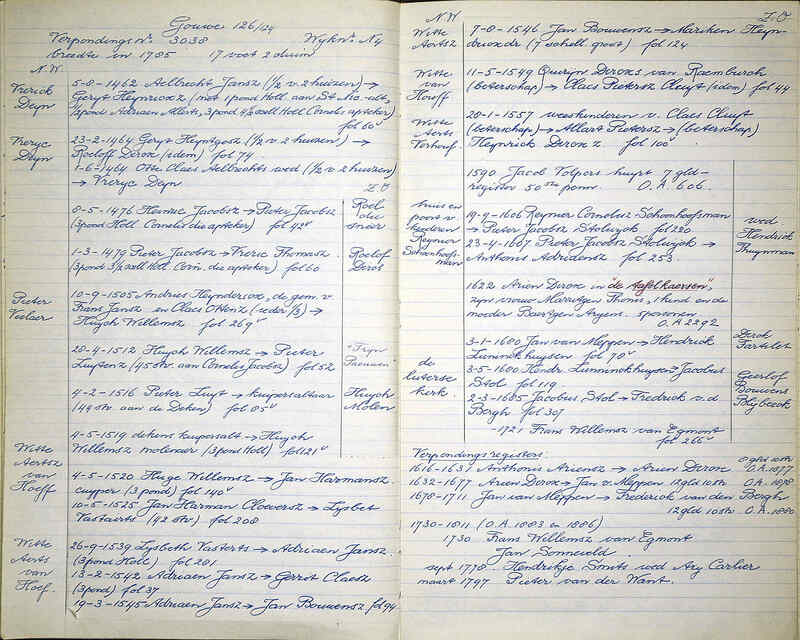 Gouwe 126/124
Verpondings no. 3038 Wijk no. N4
breedte in 1785 17 voet 2 duim
N.W.
Vrerick Deyn
5-8-1462 Aelbrecht Jansz (1/2 v. 2 huizen) →
Geryt Heynricxz (met 1 pond Holl. aan St.
1/2 pond Adriaen Allerts, 3 pond Holl Cornelis apteker)
fol 60
Vreryc Deyn
23-2-1464 Geryt Heyn (1/2 v. 2 huizen) →
Roeloff Dircxz (idem) fol 74
1-6-1464 Otte Claes Aelbrechts wed (1/2 v. 2 huizen)
→ Vreryc Deyn
Z.O
8-5-1476 Jacobsz → Pieter Jacobsz
(3 pond Holl Cornelis die apteker) fol 42v
Roel die snier
1-3-1479 Pieter Jacobsz → Vreric Thomasz
(3 pond Holl. Corn. die apteker) fol 60
Roelof Dircs
Pieter
10-9-1505 Andries Heyndericxz, de gem. v.
Frans Jansz en Claes Ottenz (ieder 1/3) →
Huych Willemsz fol 269v
28-4-1512 Huych Willemsz → Pieter
Luytenz (45 str. aan Cornelis Jacobsz) fol 52
"Tryn Paeuwen"
4-2-1516 Pieter Luyt → kuipersaltaar
(49 str. aan de Deken) fol 85v
Huych Molen
4-5-1519 dekens kuipersalt → Huych
Willemsz molenaer (3 pond Holl) fol 121v
Witte Aertsz van Hoeff
4-5-1520 Huge Willemsz → Jan Harmansz.
cuyper (3 pond) fol 140v
10-5-1525 Jan Harman Cloeversz → Lysbet
Vastaerts (42 str.) fol 208
Witte Aerts van Hoef.
26-9-1539 Lysbeth Vasterts → Adriaen Jansz
(3 pond Holl) fol 201
13-2-1542 Adriaen Jansz → Gerrit Claesz
(3 pond) fol 37
19-3-1545 Adriaen Jansz → Jan Bouwensz fol 94
N.W. Z.O
Witte Aertsz
7-8-1546 Jan Bouwensz → Mariken Heyn-
dricxdr (7 schell groot) fol 124
Witte van Hoeff
11-5-1549 Queryn Dircxs van Raemburch
(beterschap) → Claes Pietersz Cluyt (idem) fol 44
Witte Aerts Verhoef.
28-1-1557 weeskinderen v. Claes Cluyt
(beterschap) → Allart Pietersz → (beterschap)
Heynrick Dircxz fol 100v
1590 Jacob Volpers huyrt 7 gld-
register 50ste penn. O.A. 606.
huis en poort v. kinderen Reyner Schoonhoofs-man
19-9-1606 Reyner Cornelisz Schoonhoofsman
→ Pieter Jacobsz Stolwijk fol 220
23-4-1607 Pieter Jacobsz Stolwijk →
Anthonis Adriaensz fol 253
wed Hendrick Thuynman
1622 Arien Dircxz in "de Tafelkaersen",
zijn vrouw Merritgen Thonis, 1 kind en de
moeder Baertgen Aryens. sponssen
O.A 2292
de luterse kerk.
3-1-1600 Jan van Meppen → Hendrick
Lunninckhuysen fol 70v
3-5-1600 Hendr. Lunninckhuysen → Jacobus
Stol fol 119
2-3-1685 Jacobus Stol → Fredrick v. d.
Bergh fol 307
Dirck Farselet
Geerlof Bouwens Blybeeck
-1721 Frans Willemsz van Egmont
fol 266v
Verpondingsregisters:
1616-1631 Anthonis Ariensz → Arien Dircxz 8 gld 10 str. O.A. 1877
1632-1677 Arien Dircxz → Jan v. Meppen 12 gld 10 str. O.A. 1878
1678-1711 Jan van Meppen → Frederick van den Bergh
12 gld 10 str. O.A. 1880
1730-1811 (O.A. 1883 en 1886)
1730 Frans Willemsz van Egmont
Jan Sonneveld.
sept 1778 Hendrikje Smits wed Ary Carlier
maart 1797 Pieter van der Want.